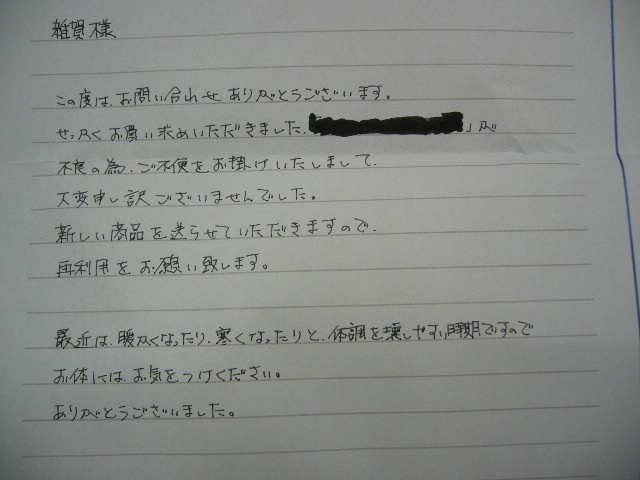 雑賀様
この度は、お問い合わせありがとうございます。
せっかくお買い求めいただきました、」が
不良の為、ご不便をお掛けいたしまして、
大変申し訳ございませんでした。
新しい商品を送らせていただきますので、
再利用をお願い致します。
最近は、暖かくなったり、寒くなったりと、体調を壊しやすい時期ですので
お体には、お気をつけください。
ありがとうございました。